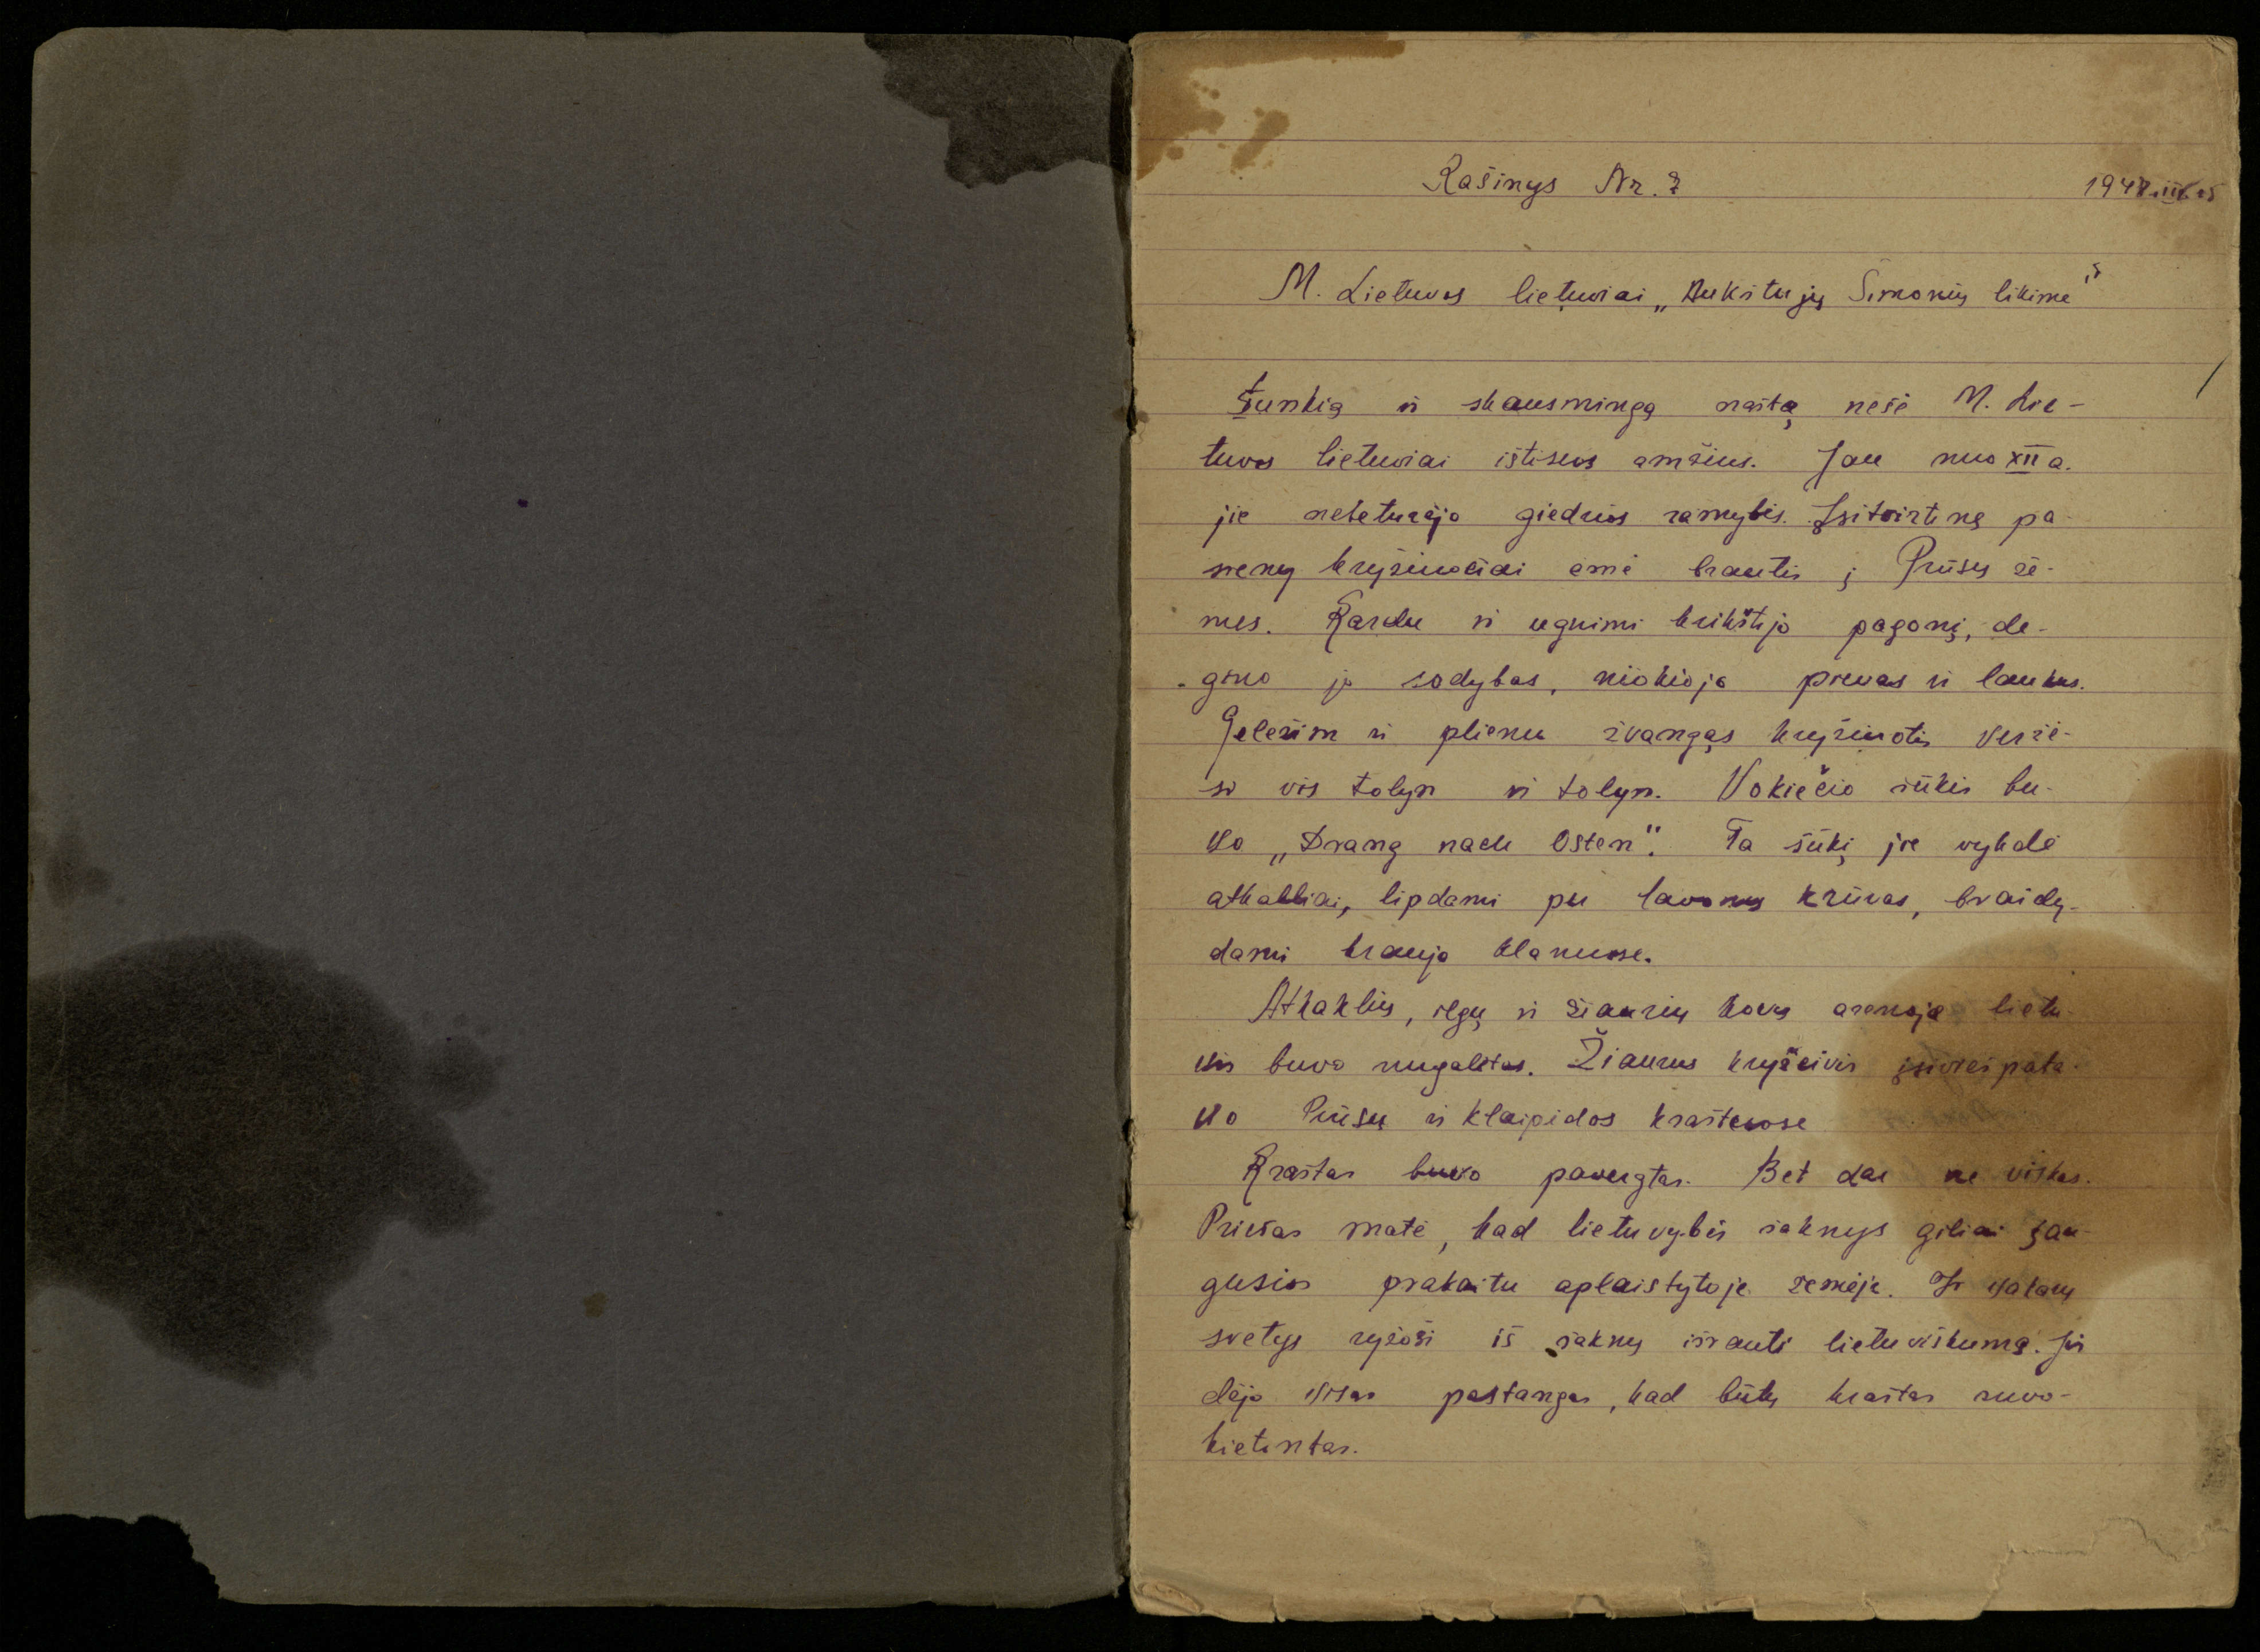 Rašinys Nr. 7
M. Lietuvos lietuviai „Aukštujų Šimonių likime"
Sunkią ir skausmingą naštą nešė M. Lie-
tuvos lietuviai ištisus amžius. Jau nuo XII a.
jie nebeturėjo giedrios ramybės. Įsitvirtinę pa-
sieny kryžiuočiai ėmė brautis į Prūsų že-
mes. Kardu ir ugnimi krikštijo pagonį, de-
gino jo sodybas, niokiojo pievas ir laukus.
Geležim ir plienu žvangąs kryžiuotis veržė-
si vis tolyn ir tolyn. Vokiečio šūkis bu-
vo „Drang nach Osten". Ta šūkį jie vykdė
atkakliai, lipdami per lavonų krūvas, braidy-
dami kraujo klanuose.
Atkaklių, ilgų ir žiaurių kovų arenoje lietu-
vis buvo nugalėtas. Žiaurus kryžeivis įsiviešpata-
vo Prūsų ir Klaipėdos kraštuose
Kraštas buvo pavergtas. Bet dar ne viskas.
Priešas matė, kad lietuvybės šaknys giliai įau-
gusios prakaitu aplaistytoje žemėje. Ir vakarų
svetys ryžosi iš šaknų išrauti lietuviškumą. Jis
dėjo visas pastangas, kad būtų kraštas suvo-
kietintas.